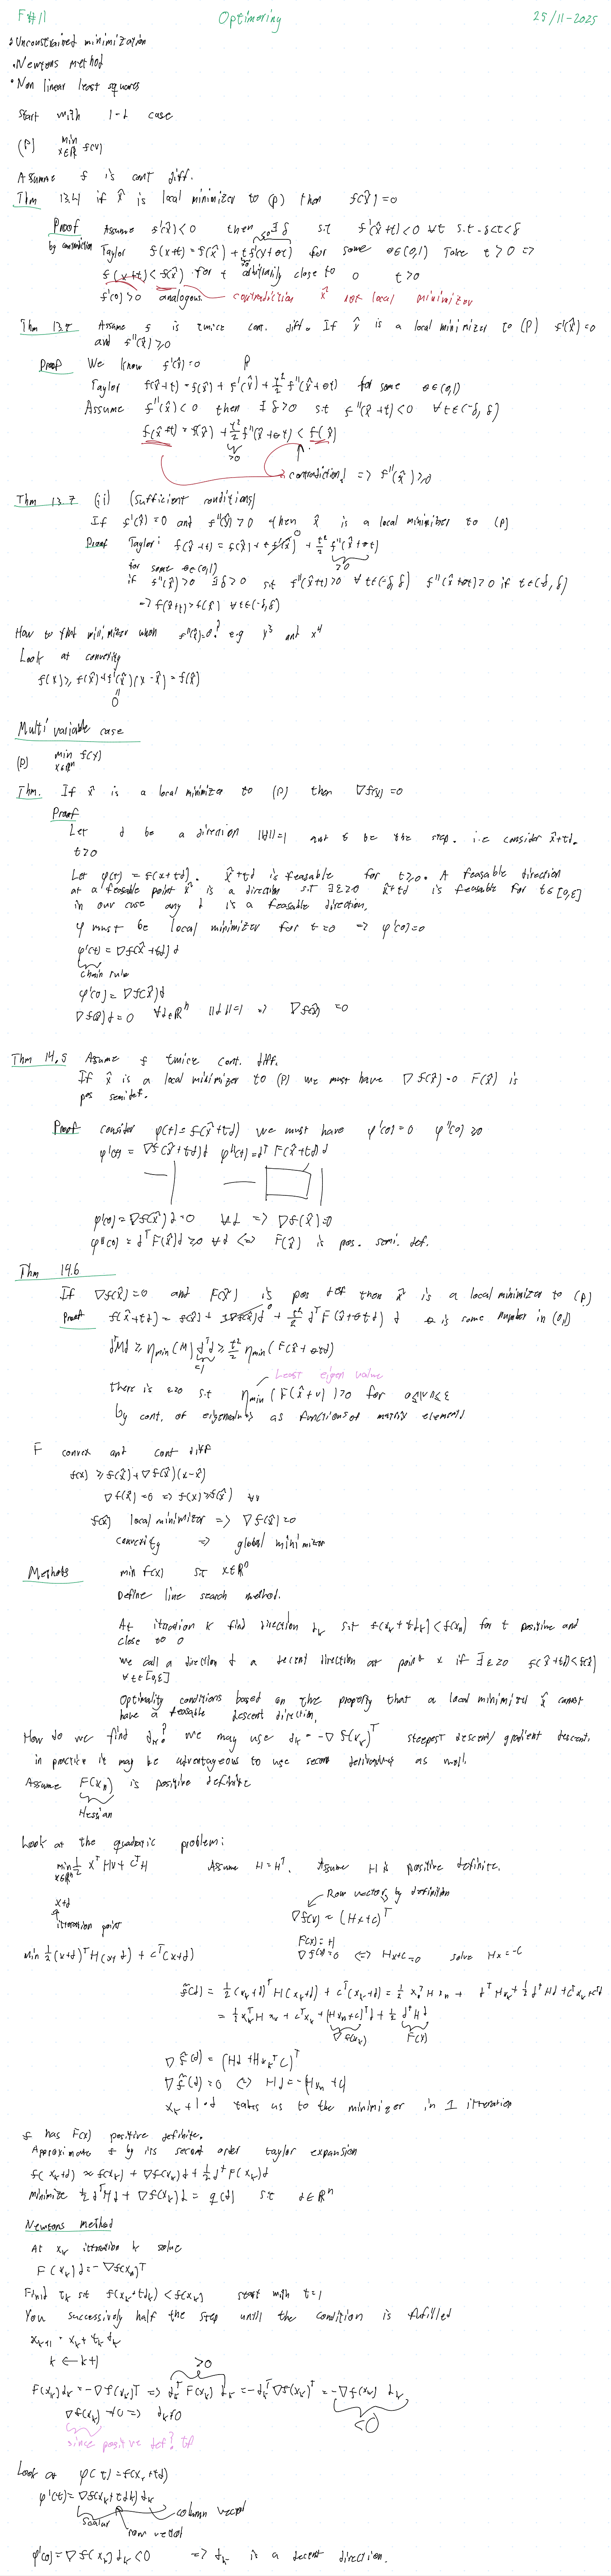 F#11 Optimering 25/11-2025
• Unconstrained minimization
• Newtons method
• Non linear least squares
Start with 1-d case
(P) min f(x)
x∈R
Assume f is cont diff.
Thm 13.4 if x̂ is local minimizer to (P) then f(x̂)=0
Proof Assume f'(x̂)<0 then ∃δ s.t f'(x̂+t)<0 ∀t s.t -δ<t<δ
by contradiction Taylor f(x+t)=f(x̂)+tf'(x+θt) for some θ∈(0,1) Take t>0 ⇒
f(x+t)<f(x̂) for t arbitrarily close to 0 t>0
f'(0)>0 analogous. contradiction x̂ not local minimizor
Thm 13.7 Assume f is twice con. diff. If x̂ is a local minimizer to (P) f'(x̂)=0
and f''(x̂)≥0
Proof We know f'(x̂)=0
Taylor f(x̂+t)=f(x̂)+f'(x̂)+t²/2 f''(x̂+θt) for some θ∈(0,1)
Assume f''(x̂)<0 then ∃δ>0 s.t f''(x̂+t)<0 ∀t∈(-δ,δ)
f(x̂+t)=f(x̂)+t²/2 f''(x̂+θt)<f(x̂)
>0
contradiction! ⇒ f''(x̂)≥0
Thm 13.7 (ii) (sufficient conditions)
If f'(x̂)=0 and f''(x̂)>0 then x̂ is a local minimizer to (P)
Proof Taylor: f(x̂+t)=f(x̂)+tf'(x̂)+t²/2 f''(x̂+θt)
for some θ∈(0,1)
if f''(x̂)>0 ∃δ>0 s.t f''(x̂+t)>0 ∀t∈(-δ,δ) f''(x̂+θt)>0 if t∈(-δ,δ)
⇒f(x̂+t)>f(x̂) ∀t∈(-δ,δ)
How to find minimizer when f''(x̂)=0? e.g x³ and x⁴
Look at convexity
f(x)≥f(x̂)+f'(x̂)(x-x̂)=f(x̂)
0
Multi variable case
(P) min f(x)
x∈Rⁿ
Thm. If x̂ is a local minimize to (P) then ∇f(x)=0
Proof
Let d be a direction ||d||=1 and t be the step. i.e consider x̂+td.
t≥0
Let φ(t)=f(x+td). x̂+td is feasable for t≥0. A feasable direction
at a feasable point x̂ is a direction s.t ∃ε≥0 x̂+td is feasable for t∈[0,ε]
in our case any d is a feasable direction.
φ must be local minimizer for t=0 ⇒ φ'(0)=0
φ'(t)=∇f(x̂+td)d
chain rule
φ'(0)=∇f(x̂)d
∇f(x̂)d=0 ∀d∈Rⁿ ||d||=1 ⇒ ∇f(x̂)=0
Thm 14.5 Assume f twice cont. diff.
If x̂ is a local minimizer to (P) we must have ∇f(x̂)=0 F(x̂) is
pos semidef.
Proof consider φ(t)=f(x̂+td) we must have φ'(0)=0 φ''(0)≥0
φ'(t)=∇f(x̂+td)d φ''(t)=dᵀF(x̂+td)d
φ'(0)=∇f(x̂)d=0 ∀d ⇒ ∇f(x̂)=0
φ''(0)=dᵀF(x̂)d≥0 ∀d ⇔ F(x̂) is pos. semi. def.
Thm 14.6
If ∇f(x̂)=0 and F(x̂) is pos def then x̂ is a local minimizer to (P)
Proof f(x̂+td)=f(x̂)+t∇f(x̂)d+t²/2 dᵀF(x̂+θtd)d θ is some number in (0,1)
dᵀMd≥η_min(M)dᵀd≥t²/2 η_min(F(x̂+θtd)
=1
Least eigen value
there is ε≥0 s.t η_min(F(x̂+v))>0 for 0≤||v||≤ε
by cont. of eigenvalues as functions of matrix elements
F convex and cont diff
f(x)≥f(x̂)+∇f(x̂)(x-x̂)
∇f(x̂)=0 ⇒ f(x)≥f(x̂) ∀x
f(x̂) local minimizor ⇒ ∇f(x̂)=0
Convexity ⇒ global minimizer
Methods min f(x) s.t x∈Rⁿ
Define line search method.
At iteration k find direction d_k s.t f(x_k+td_k)<f(x_k) for t positive and
close to 0
we call a direction d a decent direction at point x if ∃ε≥0 f(x̂+td)<f(x̂)
∀t∈[0,ε]
Optimality conditions based on the property that a local minimizer x̂ cannot
have a feasable descent direction.
How do we find d_k? we may use d_k=-∇f(x_k)ᵀ steepest descent/gradient descent.
in practice it may be advantageous to use second derivatives as well.
Assume F(x_k) is positive definite
Hessian
Look at the quadratic problem:
min ½xᵀHx+cᵀH Assume H=Hᵀ. Assume H is positive definite.
x∈Rⁿ
Row vectors by definition
x+d
iteration point
∇f(x)=(Hx+c)ᵀ
F(x)=H
min ½(x+d)ᵀH(x+d)+cᵀ(x+d) ∇f(x)=0 ⇔ Hx+c=0 solve Hx=-c
f̃(d)=½(x_k+d)ᵀH(x_k+d)+cᵀ(x_k+d)=½x_kᵀHx_k+dᵀHx_k+½dᵀHd+cᵀx_k+cᵀd
=½x_kᵀHx_k+cᵀx_k+(Hx_k+c)ᵀd+½dᵀHd
∇f(x_k) F(x)
∇f̃(d)=(Hd+Hx_k+c)ᵀ
∇f̃(d)=0 ⇔ Hd=-(Hx_k+c)
x_k+1·d takes us to the minimizer in 1 itteration
f has F(x) positive definite.
Approximate f by its second order taylor expansion
f(x_k+d)≈f(x_k)+∇f(x_k)d+½dᵀF(x_k)d
Minimize ½dᵀHd+∇f(x_k)d=q(d) s.t d∈Rⁿ
Newtons method
At x_k itteration k solve
F(x_k)d=-∇f(x_k)ᵀ
Find t_k s.t f(x_k+td_k)<f(x_k) start with t=1
You successively half the step until the condition is fulfilled
x_{k+1}=x_k+t_kd_k
k←k+1
>0
F(x_k)d_k=-∇f(x_k)ᵀ ⇒ d_kᵀF(x_k)d_k=-d_kᵀ∇f(x_k)ᵀ=-∇f(x_k)d_k
∇f(x_k)≠0 ⇒ d_k≠0 <0
since positive def?
Look at φ(t)=f(x_k+td)
φ'(t)=∇f(x_k+td_k)d_k
column vector
scalar row vector
φ'(0)=∇f(x_k)d_k<0 ⇒ d_k is a decent direction.